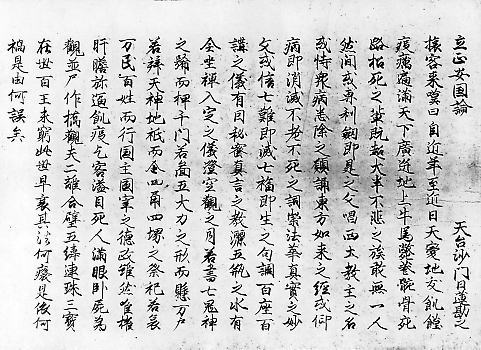 立正安国論
天台沙門日蓮勘之
旅客来嘆曰自近年至近日天變地夭飢饉
疫癘遍満天下廣迸地上牛馬斃巷骸骨充
路招死之輩既超大半不悲之族敢無一人
然間或専利劔即是之文唱西土教主之名
或恃衆病悉除之願誦東方如来之経或仰
病即消滅不老不死之詞崇法華真實之妙
文或信七難即滅七福即生之句調百座百
講之儀有因秘蜜真言之教灑五瓶之水有
全坐禅入定之儀澄空觀之月若書七鬼神
之号而押千門若圖五大力之形而懸万戸
若拜天神地祇而企四角四堺之祭祀若哀
万民百姓而行国主国宰之德政雖然唯摧
肝膽弥逼飢疫乞客溢目死人満眼臥屍為
觀並尸作橋觀夫二離合璧五緯連珠三寳
在世百王未窮此世早衰其法何廢是依何
禍是由何誤矣